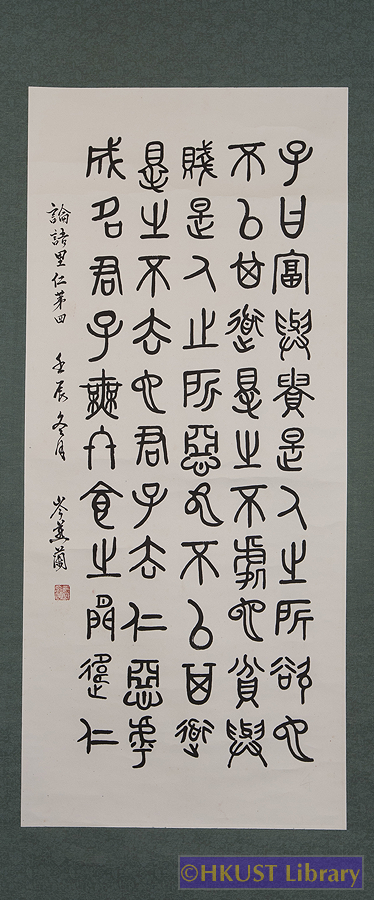 子曰富與貴是人之所欲也
不以其道得之不處也貧與
賤是人之所惡也不以其道
得之不去也君子去仁惡乎
成名君子無終食之間違仁
論語里仁第四 壬辰冬月 岑蘭
©HKUST Library